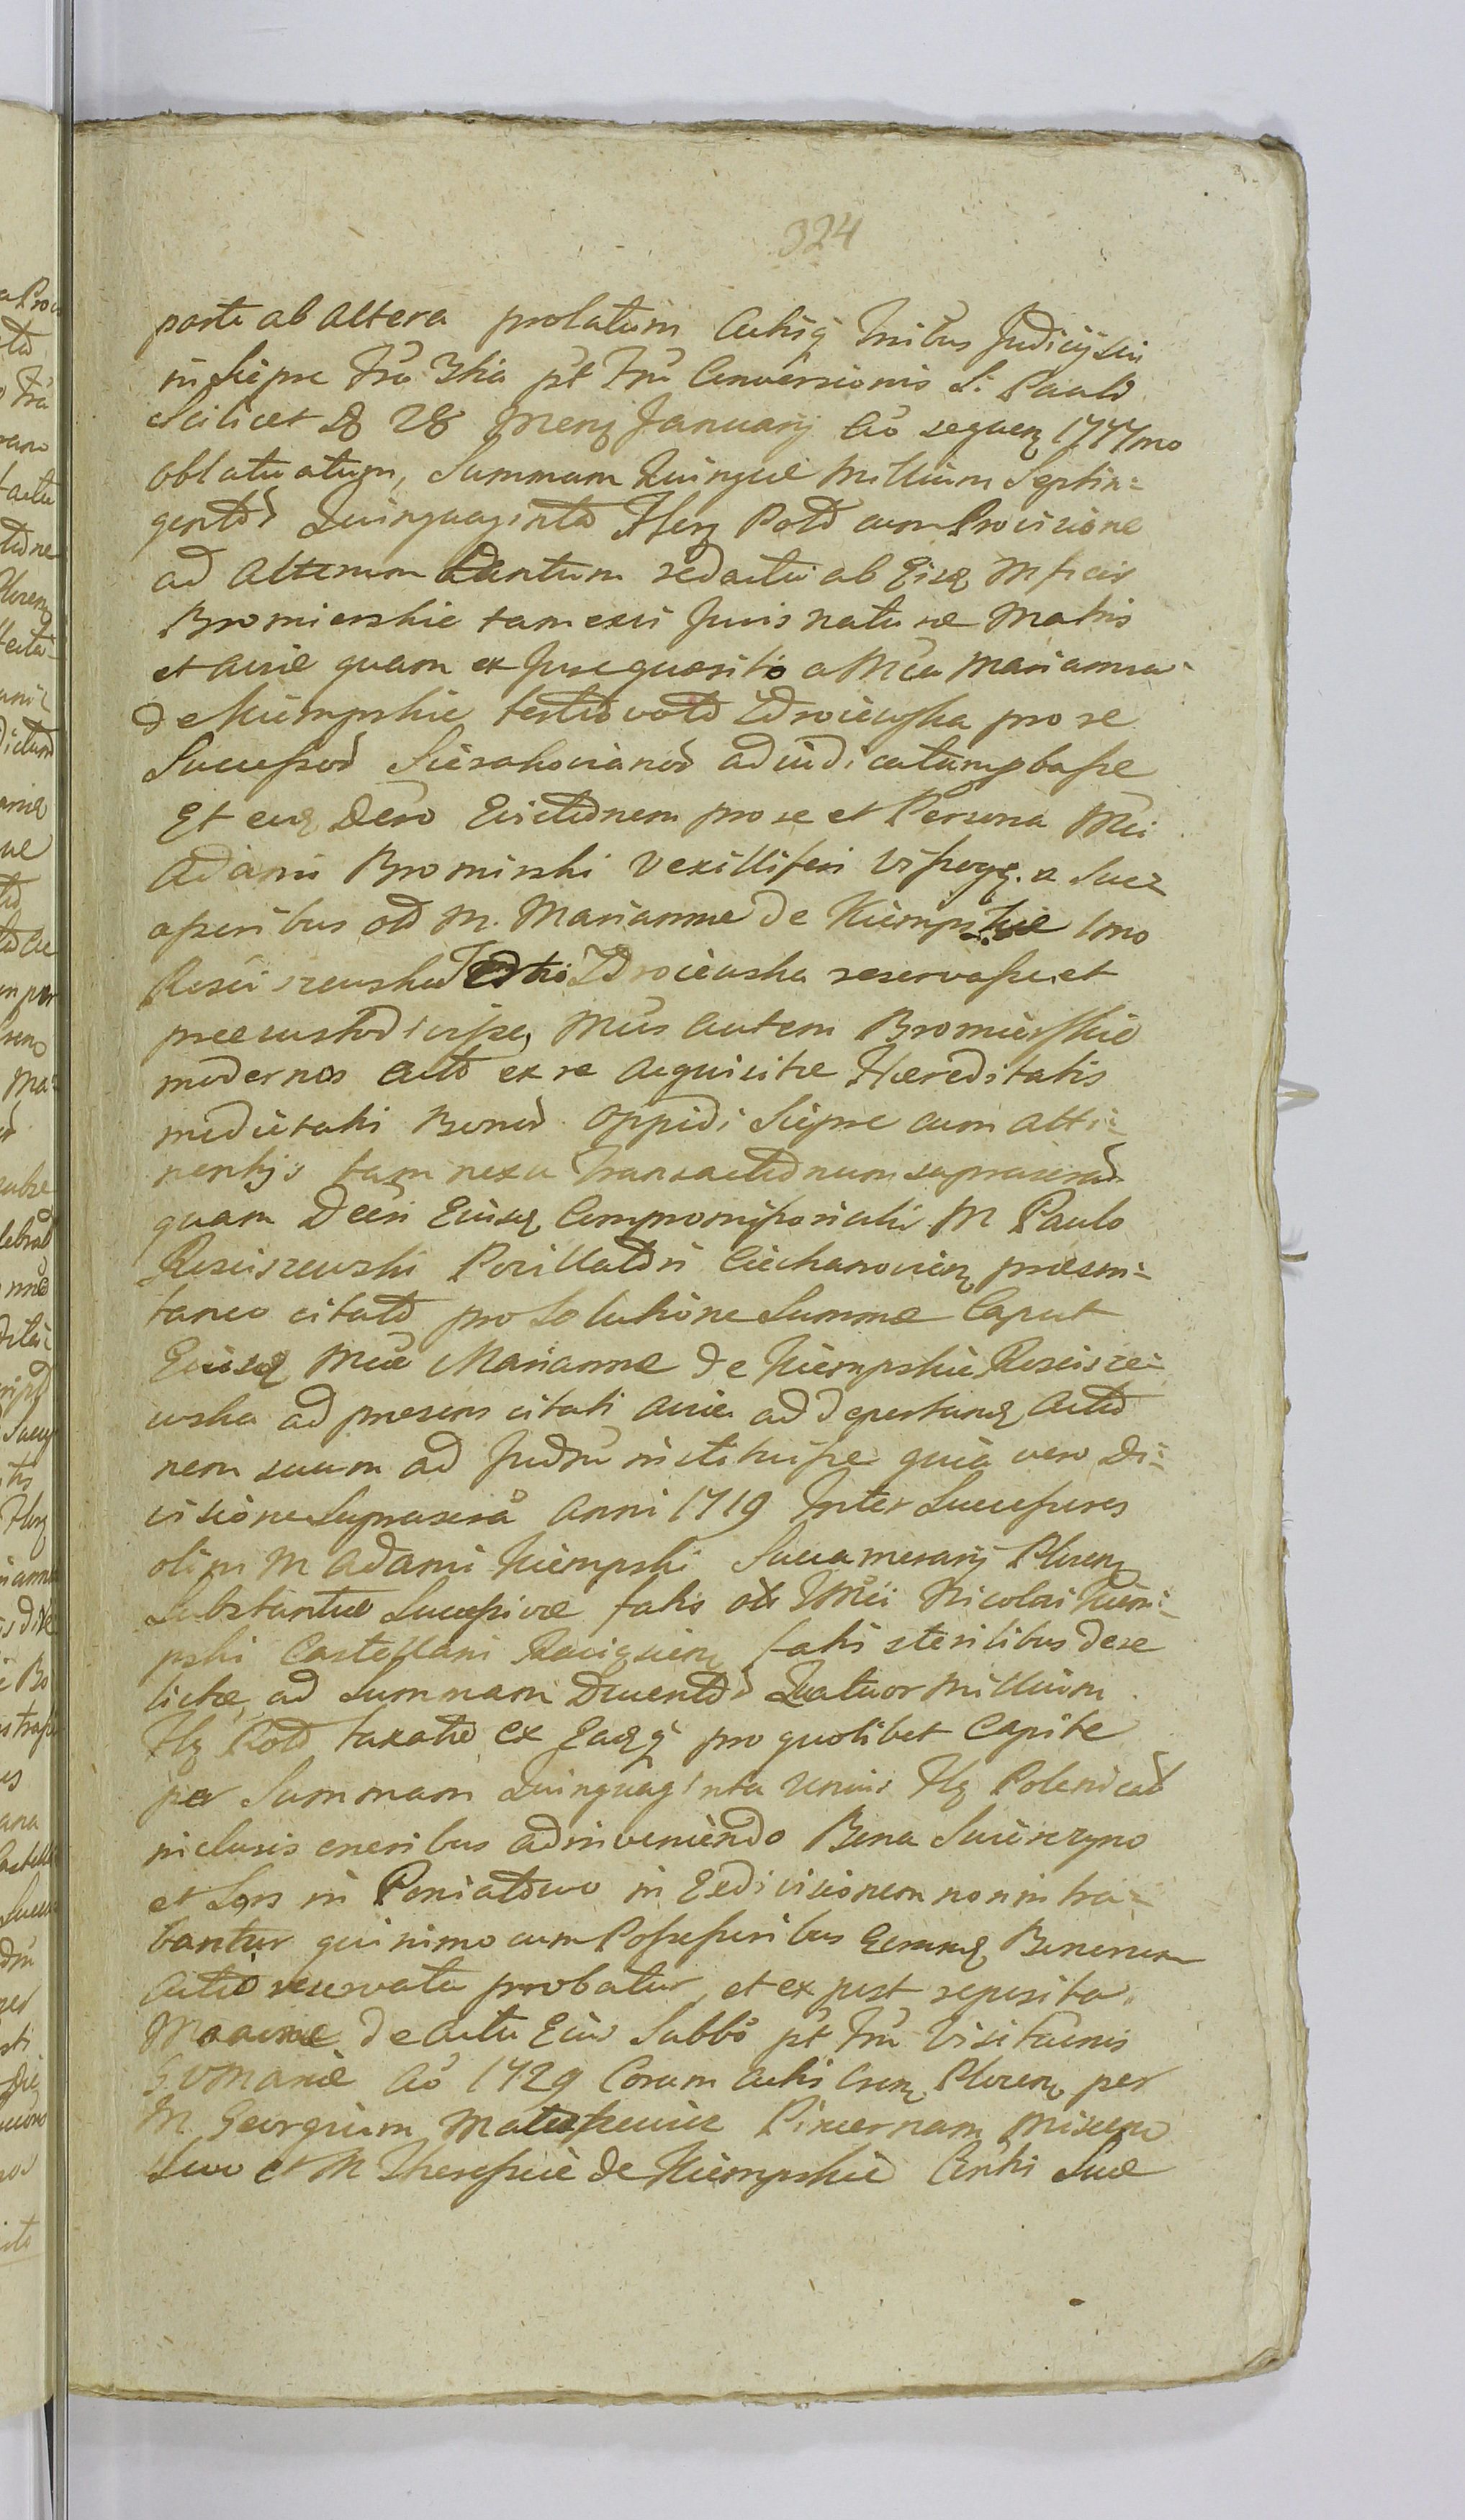 324
parte ab altera prolatum Actisq̃ Judicij sui
in Siepre pt̃ Conversionis S. Pauli
scilicet 28 Menʒ Januarij Aõ sequenʒ 1777mo
oblatu, Summam Quinque Millium Septin-
gento Quinquaginta Flenʒ Pol cum Provisione
ad alterum tantum redacta ab Eisʒ Mficis
Bromierskie tam ex Juris naturæ Matris
et aviæ quam ex Jure quæsito a Mca Marianna
de Kiempskie tertio voto Zdroiewska pro se
Succeſsor Sierakovianos adiudicatum
Et euʒ Decreto Evictionem pro se et Persona Mci
Adami Bromirski Vexilliferi a Sucʒ
aſseribus ol M. Mariannæ de Kiempskie 1mo
Rościszewska Tertio Zdroiewska reservaſse et
præcustodi viſse, Mcus autem Bromierskie
modernos Actores ex re acquisitæ Hæreditatis
medietatis Bonor Oppidi Siepre cum atti-
nentijs tam nexu Transactionum suprascrip
quam Decri Eiusʒ Compromiſsorialis M Paulo
Rosciszewski Pocillatori Ciechanovienʒ præsen-
taneo citato pro Solutione Summæ Caput
Eiusʒ Mcæ Mariannæ de Kiempskie Roscisze-
wska ad præsens citati aviæ ad depertanʒ Actio
nem suum ad Judm instituiſse quia vero Di-
visione Suprascra anni 1719 Inter Succeſsores
olim M Adami Kiempski Succamerarij Plocenʒ
Substantiæ Succeſsivæ fatis olim Mci Nicolai Kiem-
pski Castellani Raciążienʒ fatis sterilibus dere
lictæ, ad Summam Ducento Quatuor millium
Flʒ Pol taxato ex Eaqʒ pro quolibet Capite
per Summam Quinquaginta Unius Flʒ Polonical
inclusis oneribus adinveniendo Bona Swierczyno
et Sors in Poniatowo in Exdivisionem non intra-
bantur quinimo cum Poſseſsoribus Eorunʒ Bonorum
Actio reservata probatur, et ex post reposita
de actu Eius Sabbo pt̃ Visitaonis
B V Mariæ Aõ 1729 Coram Actis Plocenʒ per
M Georgium Pincernam
Suo et M Theresſiæ de Kiempskie Conthi Suæ